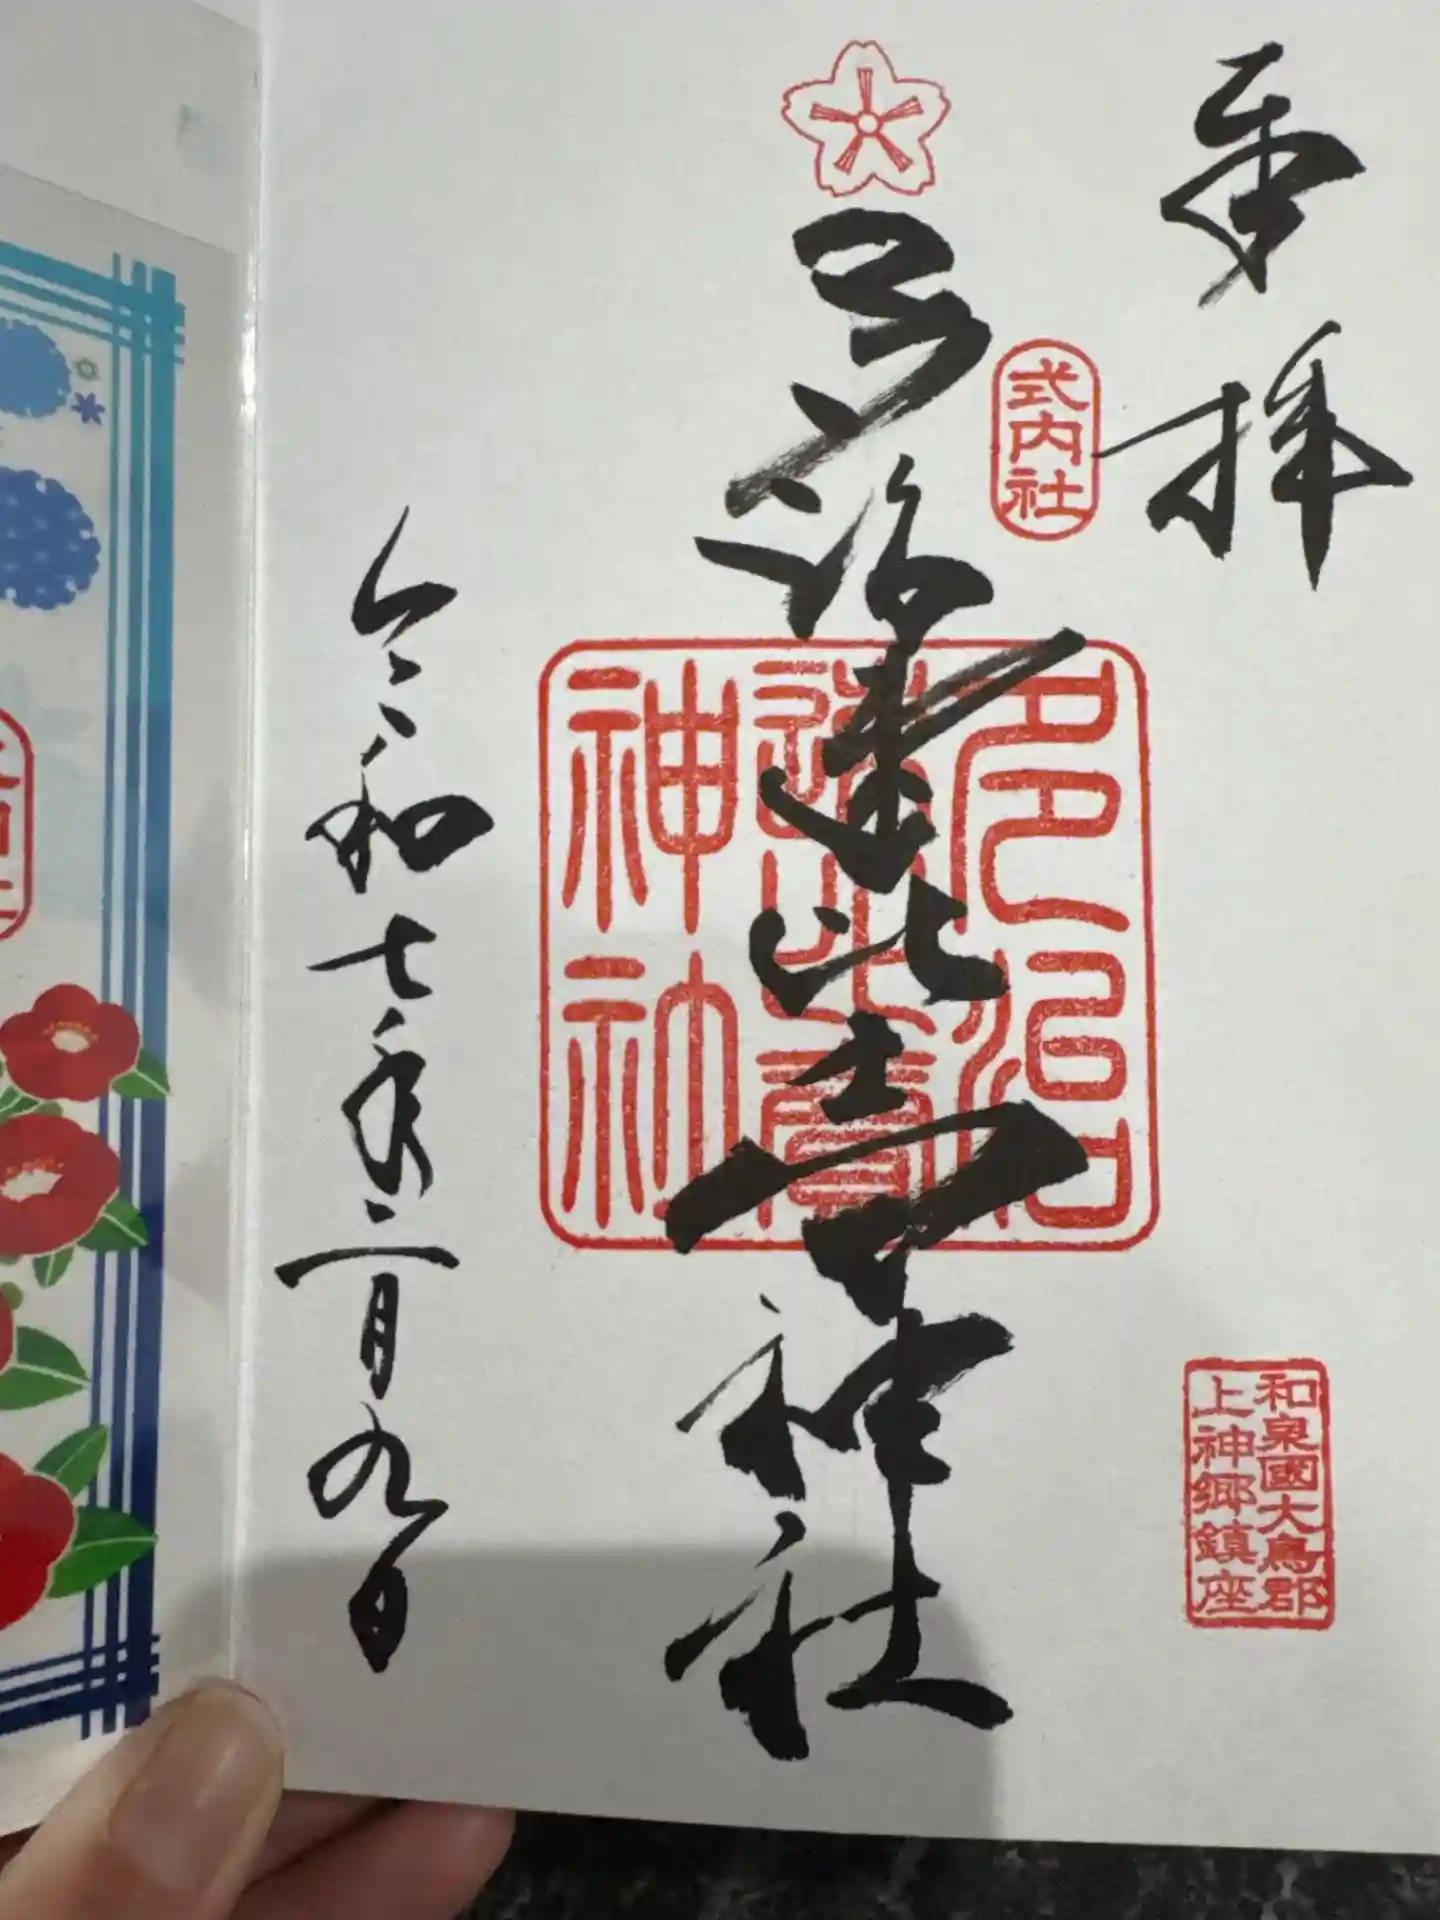 奉拝
式内社
多治速比売神社
多治
速比賣
神社
和泉國大鳥郡
上神郷鎮座
令和七年二月九日